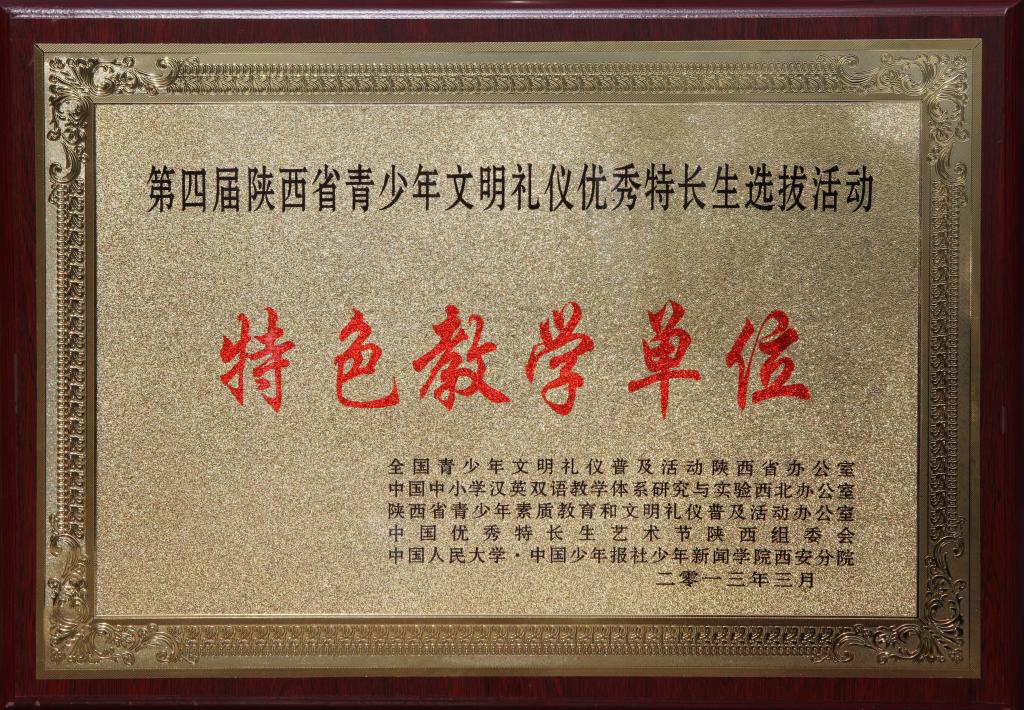 第四届陕西省青少年文明礼仪优秀特长生选拔活动
特色教学单位
全国青少年文明礼仪普及活动陕西省办公室
中国中小学汉英双语教学体系研究与实验西北办公室
陕西省青少年素质教育和文明礼仪普及活动办公室
中国优秀特长生艺术节陕西组委会
中国人民大学·中国少年报社少年新闻学院西安分院
二零一三年三月